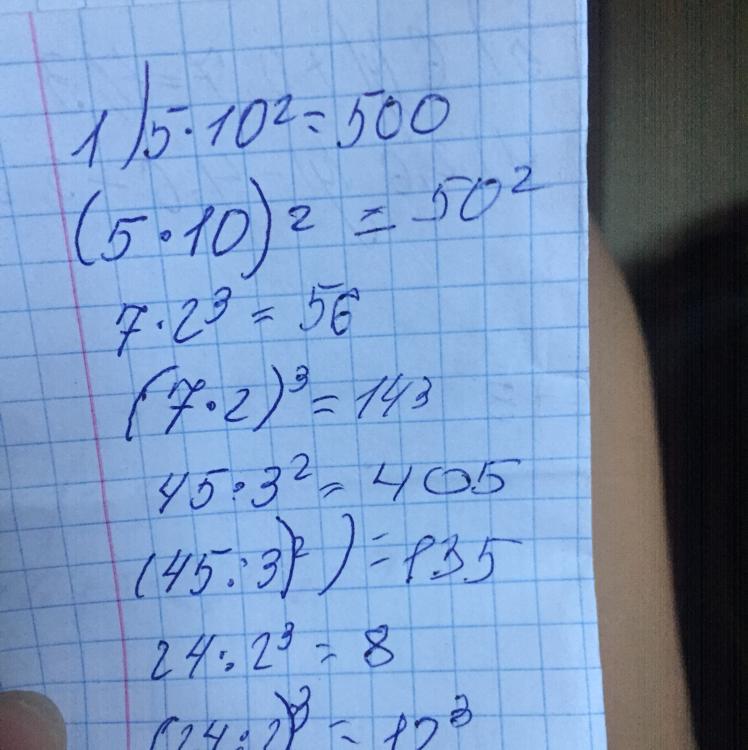 1) 5·10² = 500
(5·10)² = 50²
7·2³ = 56
(7·2)³ = 143
45:3² = 405
(45:3)²) = 135
24:2³ = 8
(24:2)³ = 12³